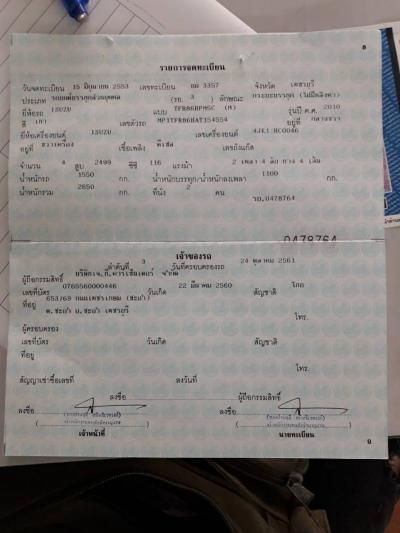 8
รายการจดทะเบียน
วันจดทะเบียน 15 มิถุนายน 2553 เลขทะเบียน 3357 จังหวัด เพชรบุรี
ประเภท รถยนต์บรรทุกส่วนบุคคล (รย. 3) ลักษณะ กระบะบรรทุก (ไม่มีหลังคา)
ยี่ห้อรถ ISUZU แบบ รุ่นปี ค.ศ. 2010
สี เทา เลขตัวรถ MP1TFR86HAT154554 อยู่ที่ กลางขวา
ยี่ห้อเครื่องยนต์ ISUZU เลขเครื่องยนต์ 4JK1 HC0046
อยู่ที่ ขวาเครื่อง เชื้อเพลิง ดีเซล เลขถังแก๊ส
จำนวน 4 สูบ 2499 ซีซี 116 แรงม้า 2 เพลา 4 ล้อ ยาง 4 เส้น
น้ำหนักรถ 1550 กก. น้ำหนักบรรทุก/น้ำหนักลงเพลา 1100 กก.
น้ำหนักรวม 2650 กก. ที่นั่ง 2 คน
รถ.0478764
0478764
เจ้าของรถ
ลำดับที่ 3 วันที่ครอบครองรถ 24 ตุลาคม 2561
ผู้ถือกรรมสิทธิ์ จำกัด
เลขที่บัตร 0765560000446 วันเกิด 22 มีนาคม 2560 สัญชาติ ไทย
ที่อยู่ 653,769 ถนนเพชรเกษม (ชะอำ)
ต.ชะอำ อ.ชะอำ เพชรบุรี โทร.
ผู้ครอบครอง
เลขที่บัตร วันเกิด สัญชาติ
ที่อยู่
โทร.
สัญญาเช่าซื้อเลขที่ ลงวันที่
ลงชื่อ ผู้ถือกรรมสิทธิ์
ลงชื่อ ลงชื่อ
เจ้าหน้าที่ นายทะเบียน
9